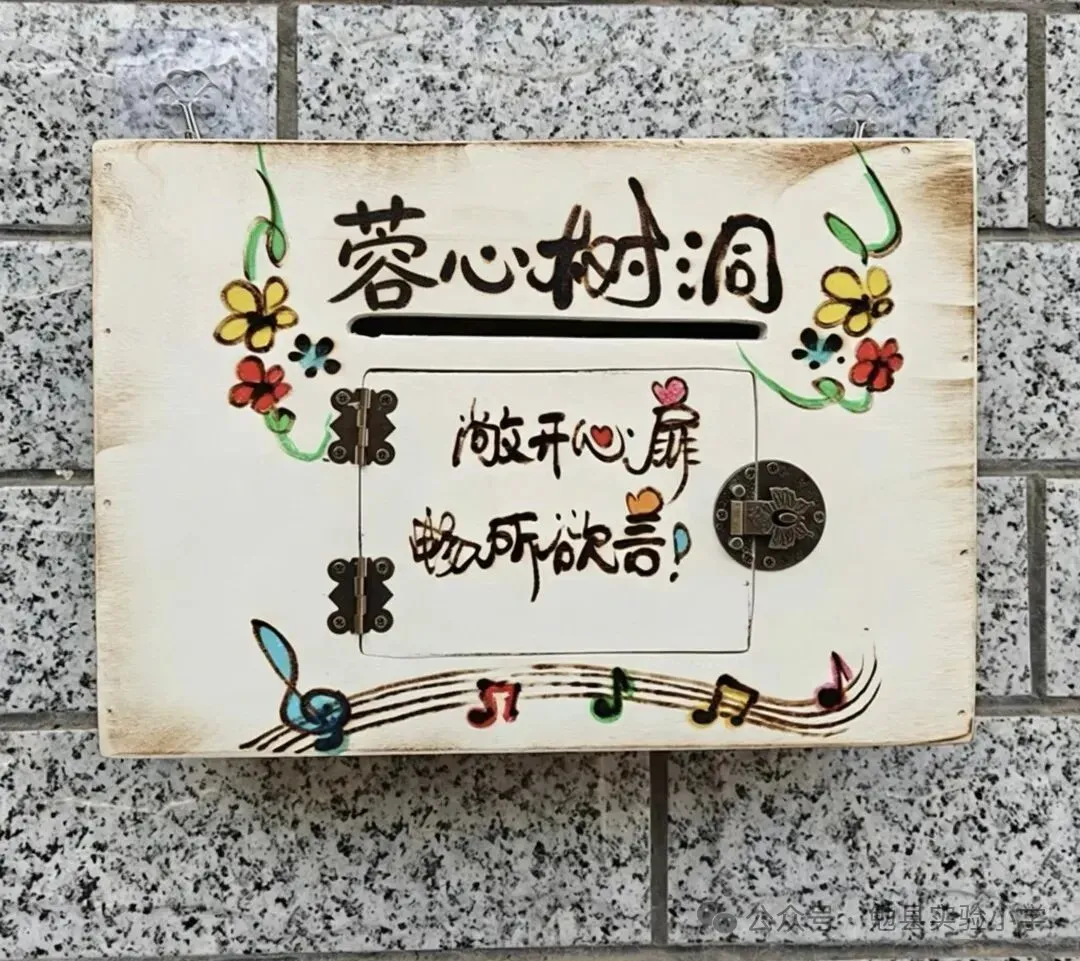 蓉心树洞
敞开心扉
畅所欲言!
公众号 勉县实验小学